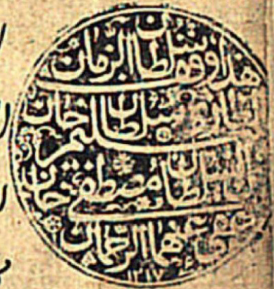 هذا وقف سلطان الزمان
سلطان سليم خان
السلطان مصطفى خان
عفى عنهما الرحمن
١٢١٧